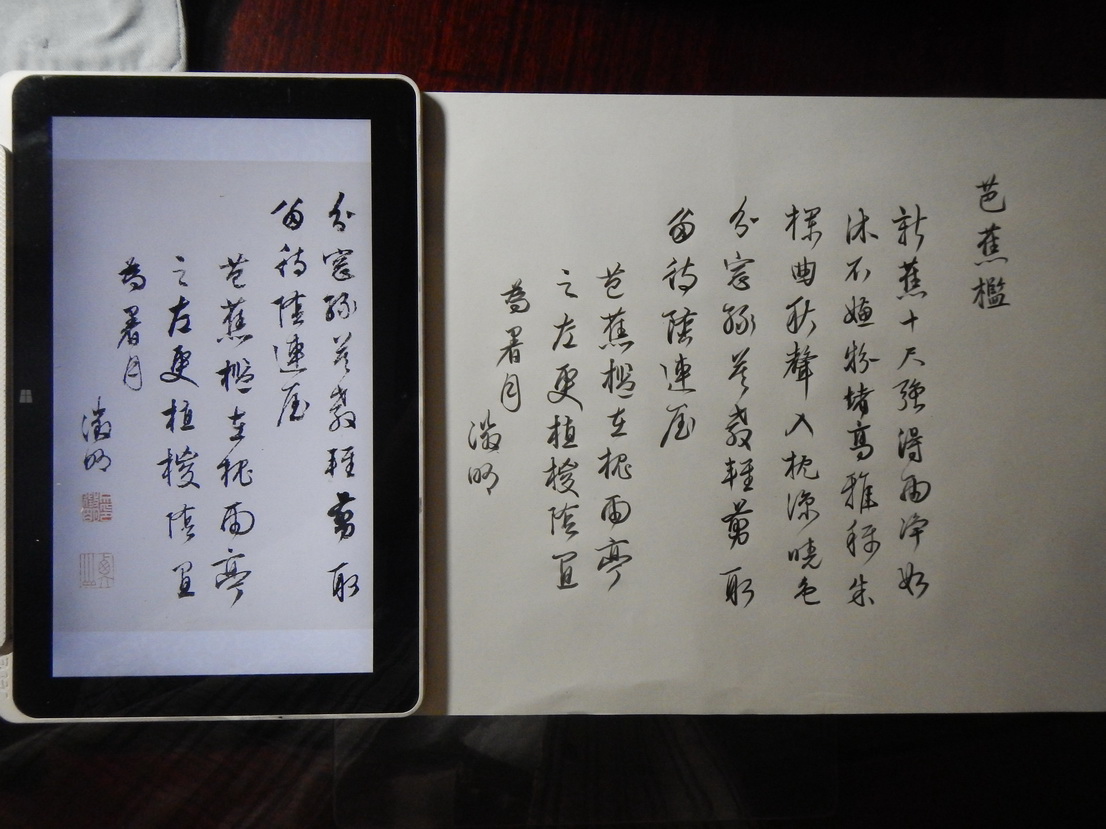 芭蕉檻
新蕉十尺強得雨淨如
沐不嫌粉堵高雅稱朱
欄曲秋聲入枕涼曉色
分窗綠莫教輕剪取
留待陰連屋
芭蕉檻在槐雨亭
之左更植椶陰宜
為暑月
徵明
分窗綠莫教輕剪取
留待陰連屋
芭蕉檻在槐雨亭
之左更植椶陰宜
為暑月
徵明